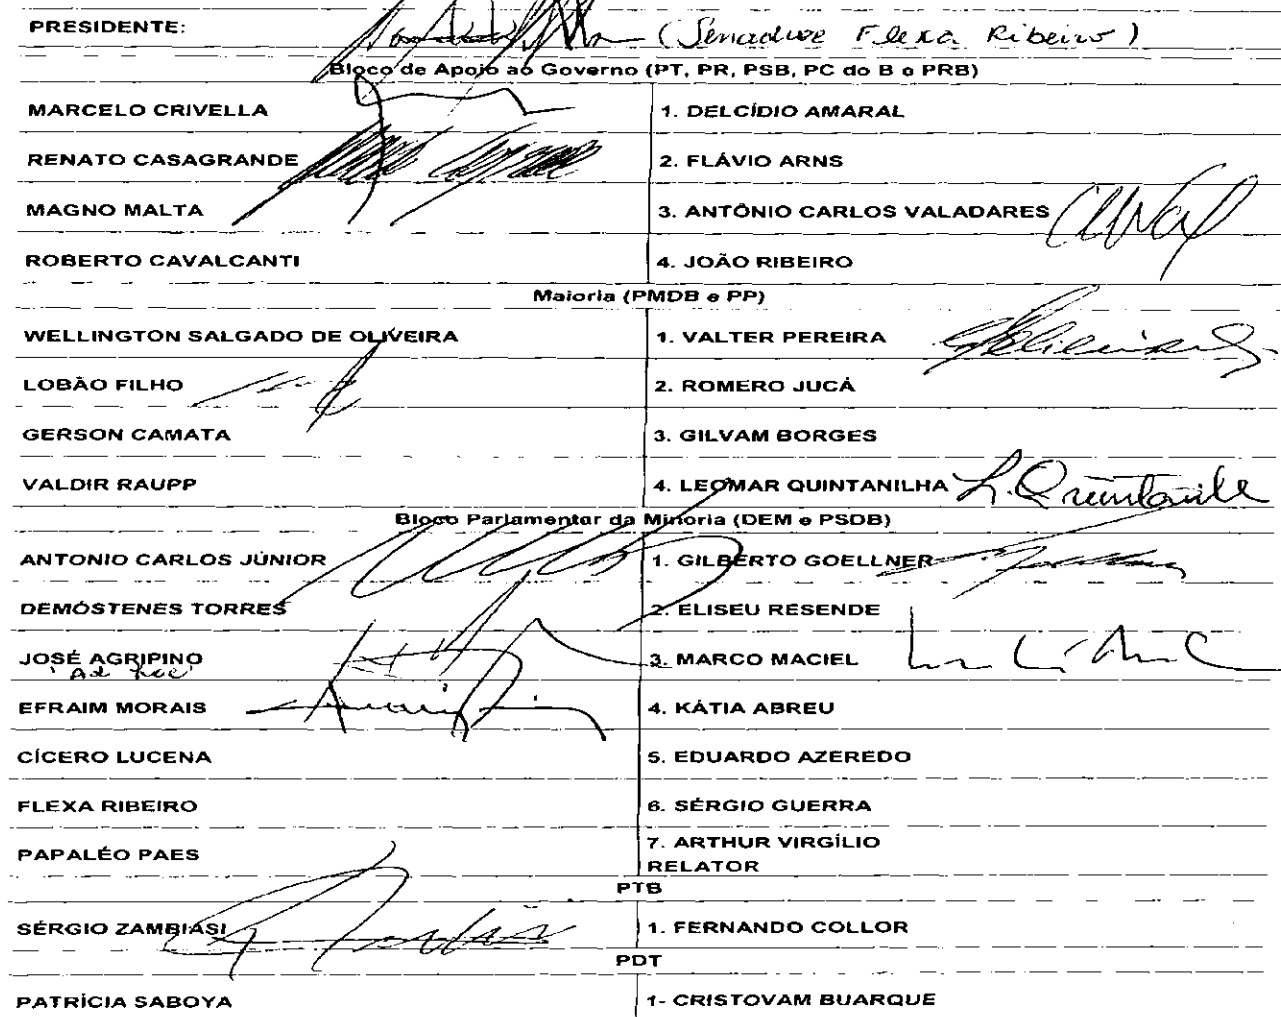 PRESIDENTE: (Senador Flexa Ribeiro)
Bloco de Apoio ao Governo (PT, PR, PSB, PC do B e PRB)
MARCELO CRIVELLA 1. DELCÍDIO AMARAL
RENATO CASAGRANDE 2. FLÁVIO ARNS
MAGNO MALTA 3. ANTÔNIO CARLOS VALADARES
ROBERTO CAVALCANTI 4. JOÃO RIBEIRO
Maioria (PMDB e PP)
WELLINGTON SALGADO DE OLIVEIRA 1. VALTER PEREIRA
LOBÃO FILHO 2. ROMERO JUCÁ
GERSON CAMATA 3. GILVAM BORGES
VALDIR RAUPP 4. LEOMAR QUINTANILHA L. Quintanilha
Bloco Parlamentar da Minoria (DEM e PSDB)
ANTONIO CARLOS JÚNIOR 1. GILBERTO GOELLNER
DEMÓSTENES TORRES 2. ELISEU RESENDE
JOSÉ AGRIPINO 3. MARCO MACIEL
"Ad hoc"
EFRAIM MORAIS 4. KÁTIA ABREU
CÍCERO LUCENA 5. EDUARDO AZEREDO
FLEXA RIBEIRO 6. SÉRGIO GUERRA
PAPALÉO PAES 7. ARTHUR VIRGÍLIO
RELATOR
PTB
SÉRGIO ZAMBIASI 1. FERNANDO COLLOR
PDT
PATRÍCIA SABOYA 1- CRISTOVAM BUARQUE